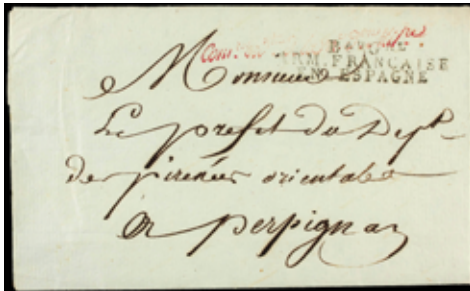 BAU GAL
ARM. FRANÇAISE
EN ESPAGNE
A Monsieur
Le prefet du Dept
des pirenées orientales
a perpignan